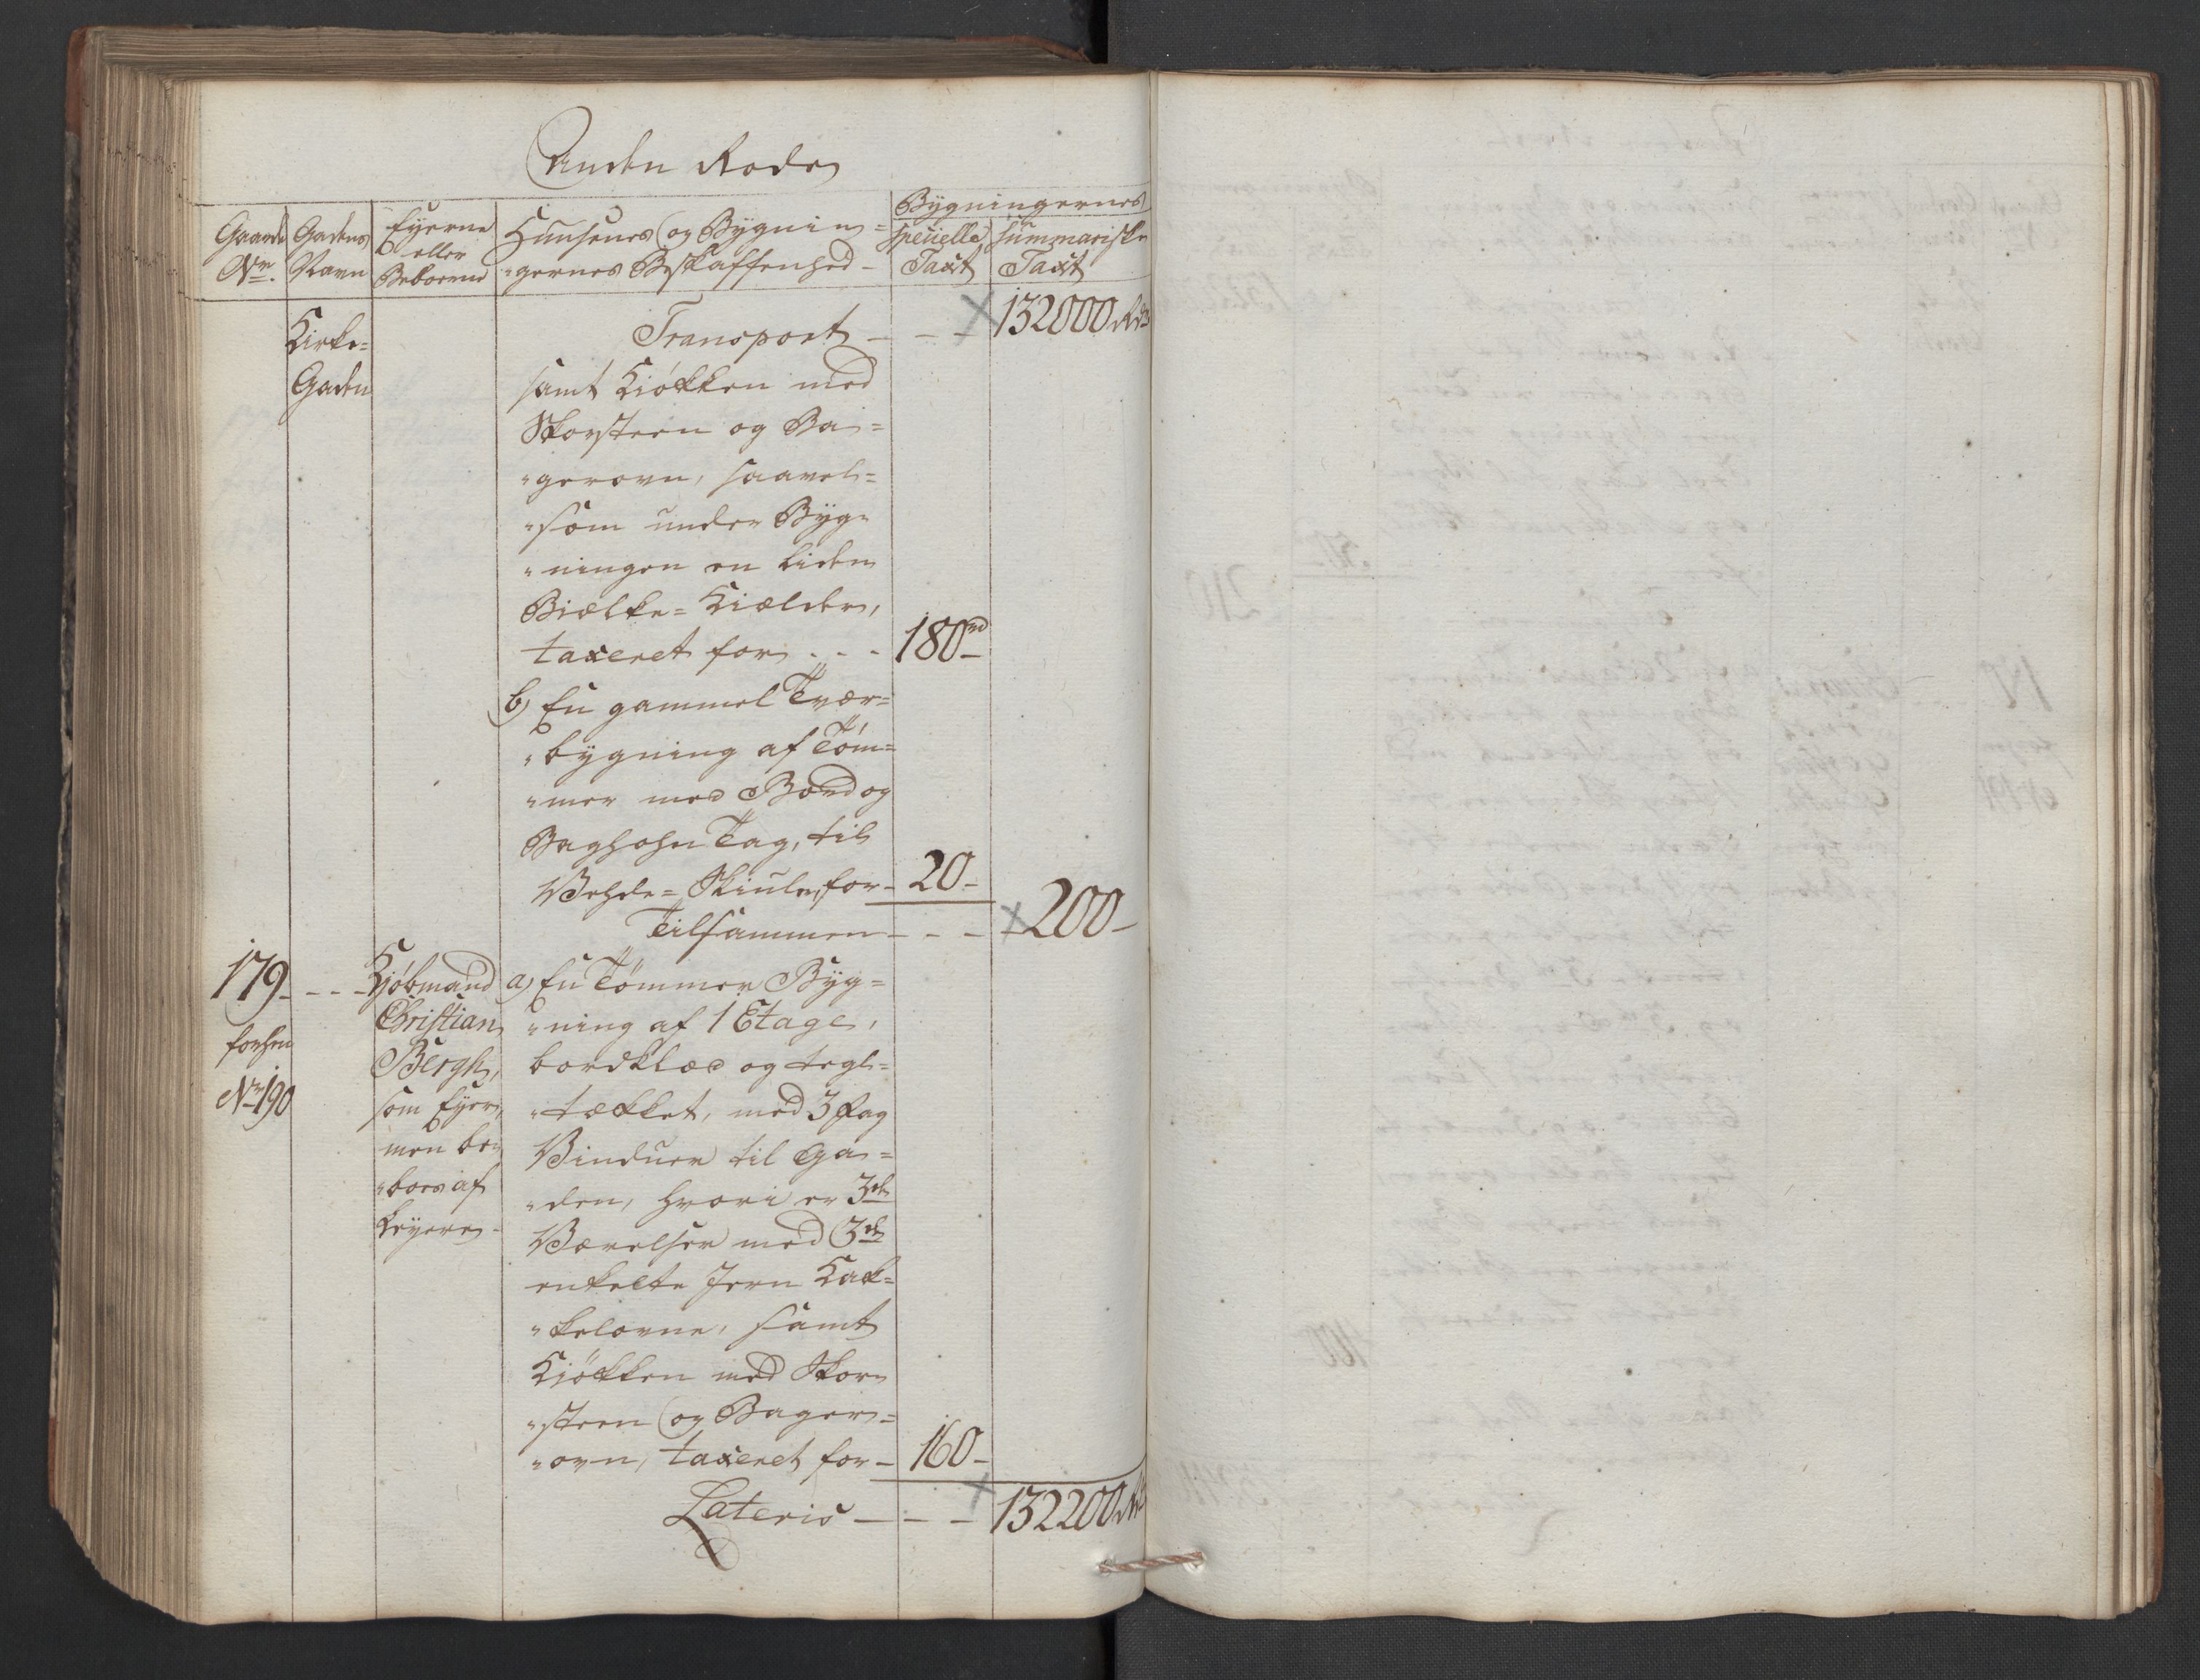 Anden Rode
Gaards Nr.
Gadens Navn
Eyerne eller Beboerne
Huusenes og Bygnin=
"gernes Beskaffenhed -
Bygningernes
specielle Taxt
summariske Taxt
Kirke=
Gaden
Transport - - - 132000 Rdr
samt Kiøkken med
Skorsteen og Ba=
"gerovn, saavel=
"som under Byg=
"ningen en liden
Bielke= Kielder,
taxeret for . - - 180 rd -
b) En gammel Tvær=
"bygning af Töm=
"mer med Bord og
Baghohn Tag, til
Vehde= Skiule, for - 20 -
Tilsammen - - - 200 -
179 - - -
forhen
No 190
Kjøbmand
Christian
Bergh,
som Eyer,
men be=
"boes af
Leyere -
a) En Tömmer Byg=
"ning af 1 Etage,
bordklæd og tegl=
"tækket, med 3 Fag
Vinduer til Ga=
"den, hvori er 3de
Værelser med 3de
enkelte Jern Kak=
"kelovne, samt
Kiökken med Skor=
"steen og Bager=
"ovn, taxeret for - 160 -
Lateris - - - 132200 Rdr